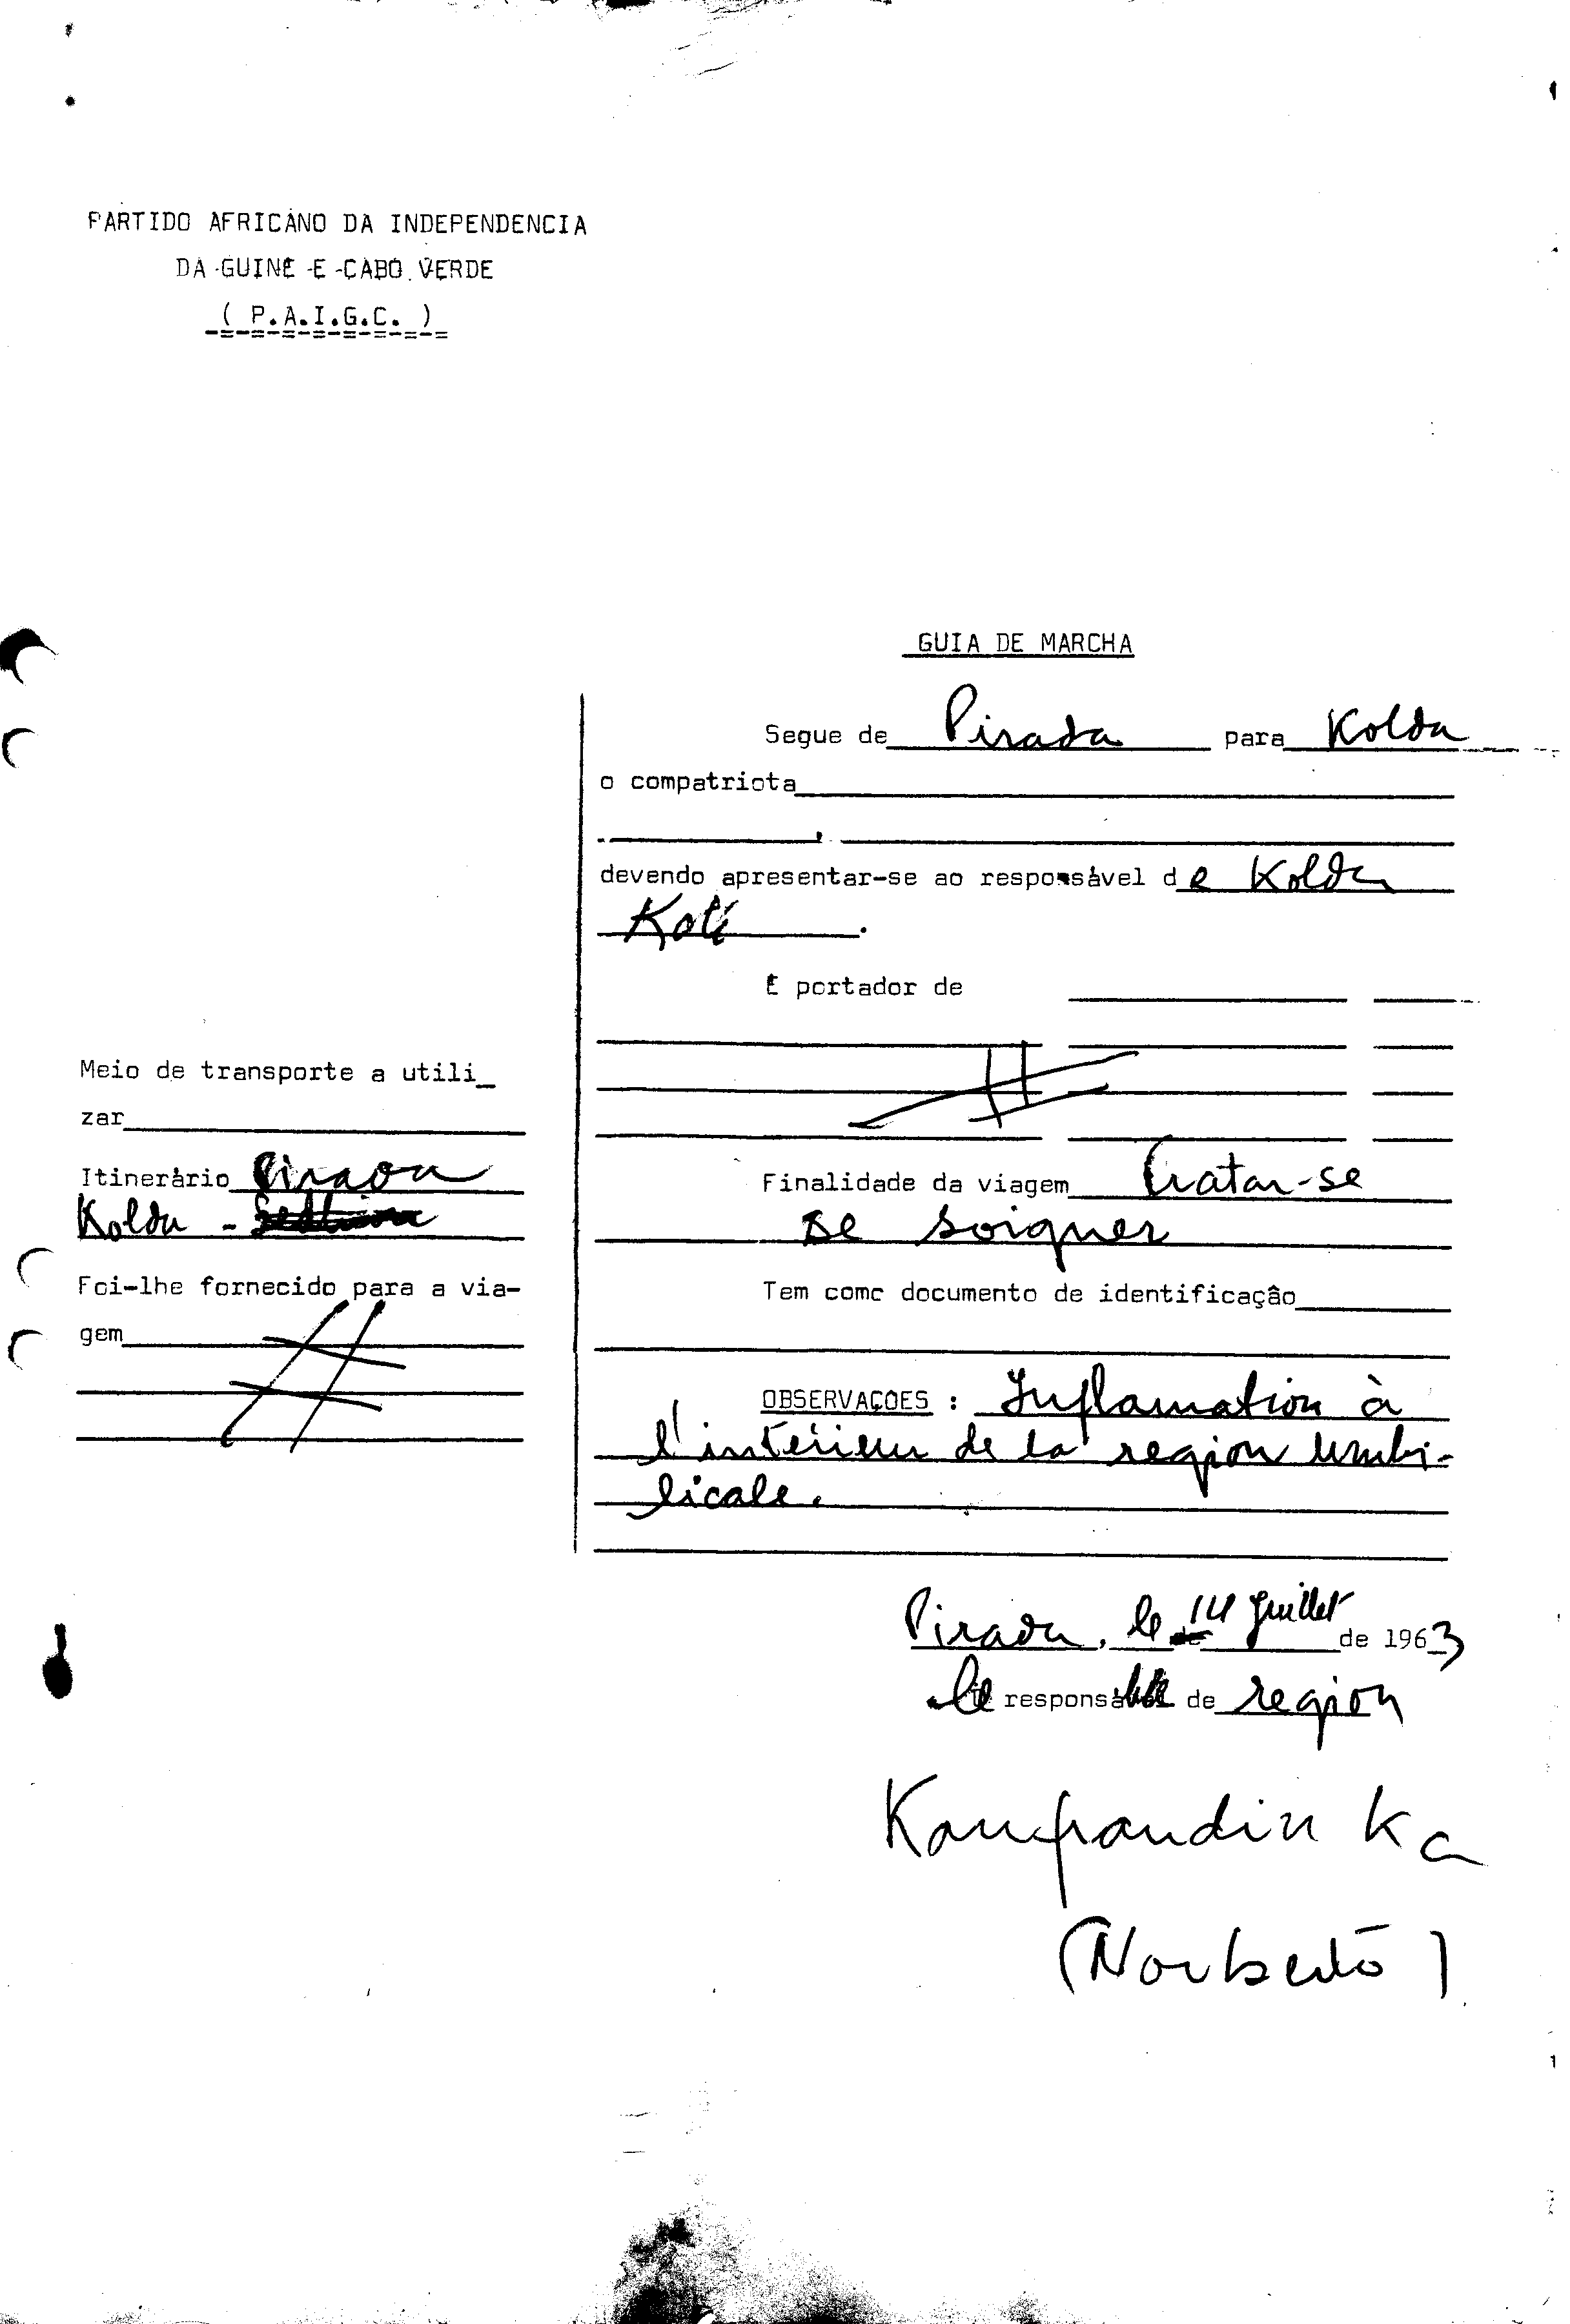 PARTIDO AFRICANO DA INDEPENDENCIA
DA GUINE E CABO VERDE
( P.A.I.G.C. )
GUIA DE MARCHA
Segue de Pirada para Kolda
o compatriota
devendo apresentar-se ao responsável de Kolda
É portador de
Finalidade da viagem Tratar-se
se soigner
Tem como documento de identificação
OBSERVAÇOES : Inflamation à
l'intérieur de la region umbi-
licale.
Meio de transporte a utili_
zar
Itinerário Pirada
Kolda -
Foi-lhe fornecido para a via-
gem
Pirada, le 14 Juillet de 1963
Le responsable de region
Ka
(Norberto)